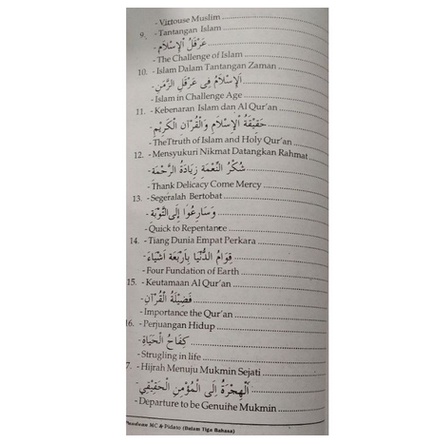 - Virtouse Muslim
9. - Tantangan Islam
عَرْقَلُ اْلإِسْلَامِ
- The Challenge of Islam
10. - Islam Dalam Tantangan Zaman
اَلْإِسْلَامُ فِى عَرْقَلِ الزَّمَنِ
- Islam in Challenge Age
11. - Kebenaran Islam dan Al Qur'an
حَقِيْقَةُ اْلإِسْلَامِ وَالْقُرْآنِ الْكَرِيْمِ
- TheTtruth of Islam and Holy Qur'an
12. - Mensyukuri Nikmat Datangkan Rahmat
شُكْرُ النِّعْمَةِ زِيَادَةُ الرَّحْمَةِ
- Thank Delicacy Come Mercy
13. - Segeralah Bertobat
وَسَارِعُوْا إِلَى التَّوْبَةِ
- Quick to Repentance
14. - Tiang Dunia Empat Perkara
قِوَامُ الدُّنْيَا بِأَرْبَعَةِ أَشْيَاءَ
- Four Fundation of Earth
15. - Keutamaan Al Qur'an
فَضِيْلَةُ الْقُرْآنِ
- Importance the Qur'an
16. - Perjuangan Hidup
كِفَاحُ الْحَيَاةِ
- Strugling in life
7. - Hijrah Menuju Mukmin Sejati
اَلْهِجْرَةُ إِلَى الْمُؤْمِنِ الْحَقِيْقِيِّ
- Departure to be Genuine Mukmin
Panduan MC & Pidato (Dalam Tiga Bahasa)